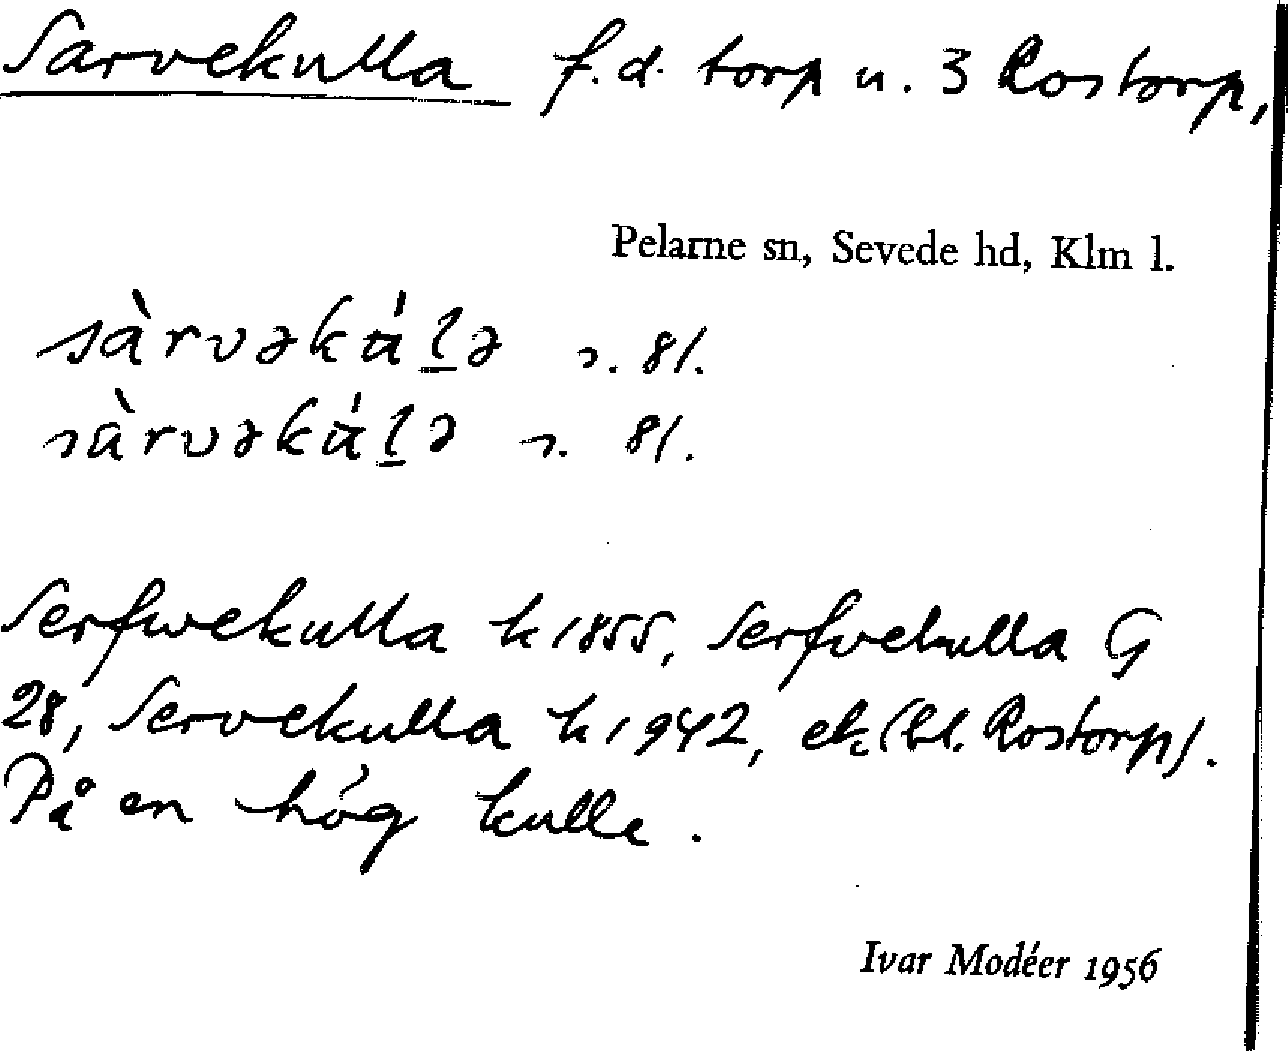 Sarvekulla f.d. torp u. 3 Rostorp,
Pelarne sn, Sevede hd, Klm l.
sàrvəkáḻə s. 81.
sàrvəkáḻə s. 81.
Serfwekulla k 1855, Serfvekulla G
28, Servekulla k 1942, ek (bl. Rostorp).
På en hög kulle.
Ivar Modéer 1956